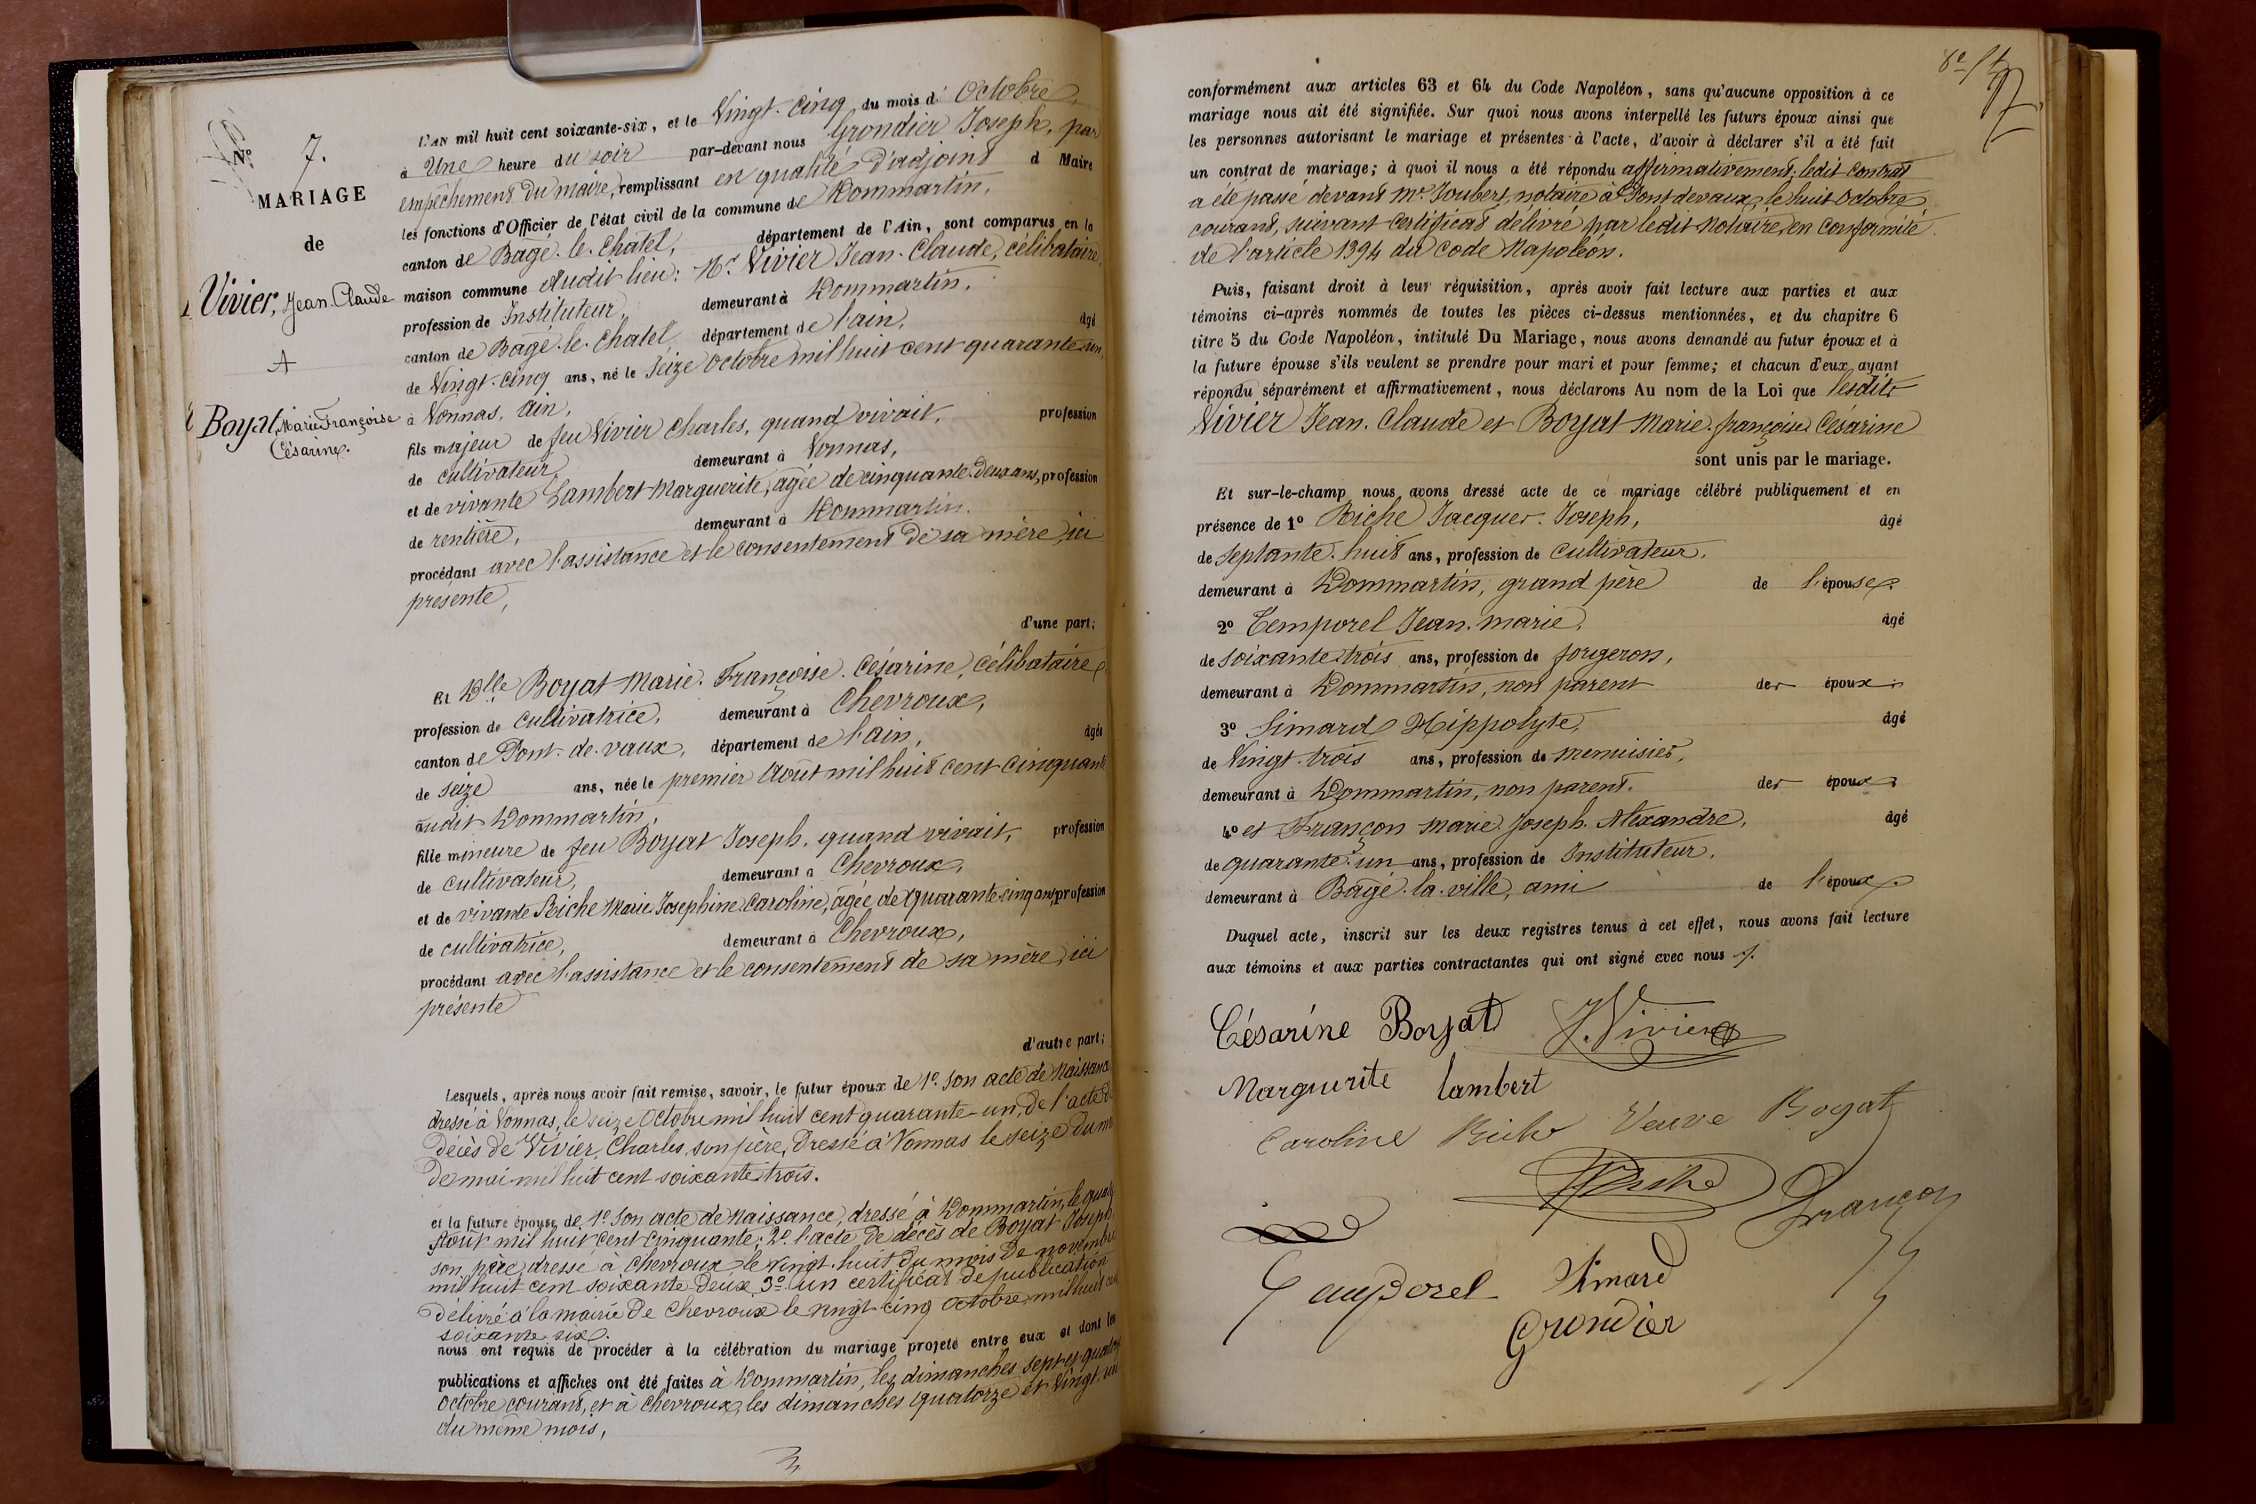 N° 7.
MARIAGE
de
Vivier, Jean-Claude
A
Boyat, Marie Françoise
Césarine.
L'AN mil huit cent soixante-six, et le Vingt-cinq du mois d' Octobre,
à Une heure du soir par-devant nous Grondier Joseph, par
empêchement du maire, remplissant en qualité d'adjoint d Maire
les fonctions d'Officier de l'état civil de la commune de Dommartin,
canton de Bagé-le-Châtel, département de l'Ain, sont comparus en la
maison commune dudit lieu: Mr. Vivier Jean-Claude, célibataire,
profession de Instituteur, demeurant à Dommartin,
canton de Bagé-le-Chatel, département de l'ain, âgé
de Vingt-cinq ans, né le seize octobre mil huit cent quarante-un,
à Vonnas, ain,
fils majeur de feu Vivier Charles, quand vivait, profession
de cultivateur, demeurant à Vonnas,
et de vivante Lambert Marguerite, agée de cinquante-deux ans, profession
de rentière, demeurant à Dommartin.
procédant avec l'assistance et le consentement de sa mère, ici
présente,
d'une part;
Et Dlle Boyat Marie-Françoise-Césarine, célibataire,
profession de cultivatrice, demeurant à Chevroux,
canton de Pont-de-vaux, département de l'ain, âgée
de seize ans, née le premier Août mil huit cent cinquante
audit Dommartin,
fille mineure de feu Boyat Joseph, quand vivait, profession
de cultivateur, demeurant à Chevroux,
et de vivante Riche Marie Josephine Caroline, âgée de quarante-cinq ans, profession
de cultivatrice, demeurant à Chevroux,
procédant avec l'assistance et le consentement de sa mère, ici
présente
d'autre part;
Lesquels, après nous avoir fait remise, savoir, le futur époux de 1° son acte de naissance
dressé à Vonnas, le seize Octobre mil huit cent quarante-un, de l'acte de
décès de Vivier, Charles, son père, dressé à Vonnas le seize du mois
de mai mil huit cent soixante trois.
et la future épouse de 1° son acte de naissance, dressé à Dommartin, le quatre
Août mil huit cent cinquante; 2° l'acte de décès de Boyat Joseph,
son père, dressé à Chevroux, le vingt-huit du mois de novembre
mil huit cent soixante deux, 3° un certificat de publication
délivré à la mairie de Chevroux le vingt-cinq octobre, mil huit cent
soixante six.
nous ont requis de procéder à la célébration du mariage projeté entre eux et dont les
publications et affiches ont été faites à Dommartin, les dimanches sept et quatorze
octobre courant, et à Chevroux, les dimanches quatorze et vingt-un
du même mois,
conformément aux articles 63 et 64 du Code Napoléon, sans qu'aucune opposition à ce
mariage nous ait été signifiée. Sur quoi nous avons interpellé les futurs époux ainsi que
les personnes autorisant le mariage et présentes à l'acte, d'avoir à déclarer s'il a été fait
un contrat de mariage; à quoi il nous a été répondu affirmativement; ledit contrat
a été passé devant Me. Joubert, notaire à Pont devaux, le huit Octobre
courant, suivant certificat délivré par ledit notaire, en conformité
de l'article 1394 du Code Napoléon.
Puis, faisant droit à leur réquisition, après avoir fait lecture aux parties et aux
témoins ci-après nommés de toutes les pièces ci-dessus mentionnées, et du chapitre 6
titre 5 du Code Napoléon, intitulé Du Mariage, nous avons demandé au futur époux et à
la future épouse s'ils veulent se prendre pour mari et pour femme; et chacun d'eux ayant
répondu séparément et affirmativement, nous déclarons Au nom de la Loi que lesdits
Vivier Jean-Claude et Boyat Marie-françoise Césarine
sont unis par le mariage.
Et sur-le-champ nous avons dressé acte de ce mariage célébré publiquement et en
présence de 1° Riche Jacques-Joseph, âgé
de septante-huit ans, profession de cultivateur,
demeurant à Dommartin, grand père de l'épouse
2° Temporel Jean-marie, âgé
de soixante-trois ans, profession de forgeron,
demeurant à Dommartin, non parent des époux
3° Simard Hippolyte, âgé
de Vingt-trois ans, profession de menuisier,
demeurant à Dommartin, non parent. des époux
4° et Françon Marie-Joseph-Alexandre, âgé
de quarante-un ans, profession de Instituteur,
demeurant à Bagé-la-ville, ami de l'époux
Duquel acte, inscrit sur les deux registres tenus à cet effet, nous avons fait lecture
aux témoins et aux parties contractantes qui ont signé avec nous
Césarine Boyat J. Vivier
Marguerite lambert
Caroline Riche Veuve Boyat
Riche
Françon
Temporel Simard
Grondier